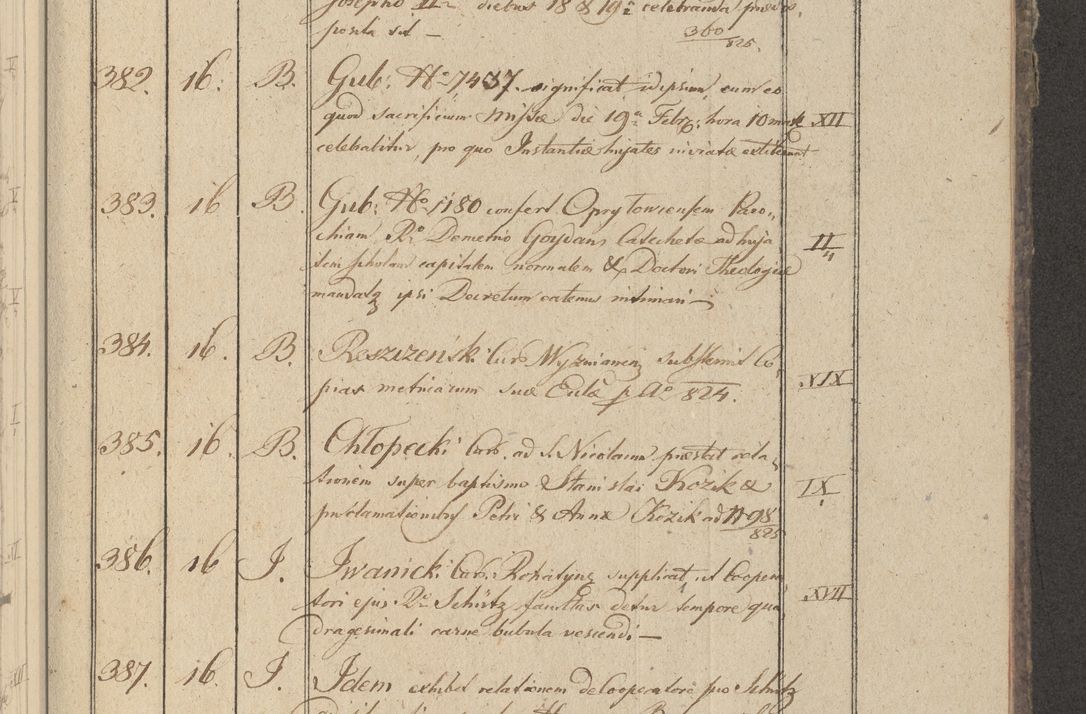 Josepho II diebus 18 & 19a celebranda praepo,
posita sit —
360/825.
382. 16. B. Gub: No 7437. significat idipsum, cum eo
quod sacrificium Missæ die 19a Febr: hora 10 mat XII
celebrabitur, pro quo Instantiæ hujates invitatæ extiterunt
383. 16 B. Gub: No 1180 confert Opryłowcensem Paro„
chiam Rdo Demetrio Goydans Catechetæ ad huja II/4
tem scholam capitalem normalem & Doctori Theologiæ
mandatq ipsi Decretum eatenus intimari —
384. 16. B. Rszizeński Cur. Wyznianen, substernit Co„
pias metricarum suæ Eccłæ p Ao 824. XIX
385. 16. B. Chłopecki Cur. ad S. Nicolaum præstat rela„
tionem super baptismo Stanislai Kozik & IX/1
proclamationibus Petri & Annæ Kozik ad No 98/825
386. 16 I. Iwanicki Cur. Rohatyn, supplicat, ut Coopera„
tori ejus Rdo Schütz facultas detur tempore qua XVII
dragesimali carne bubula vescendi. —
387. 16. I. Idem exhibet relationem de Cooperatore suo Schütz